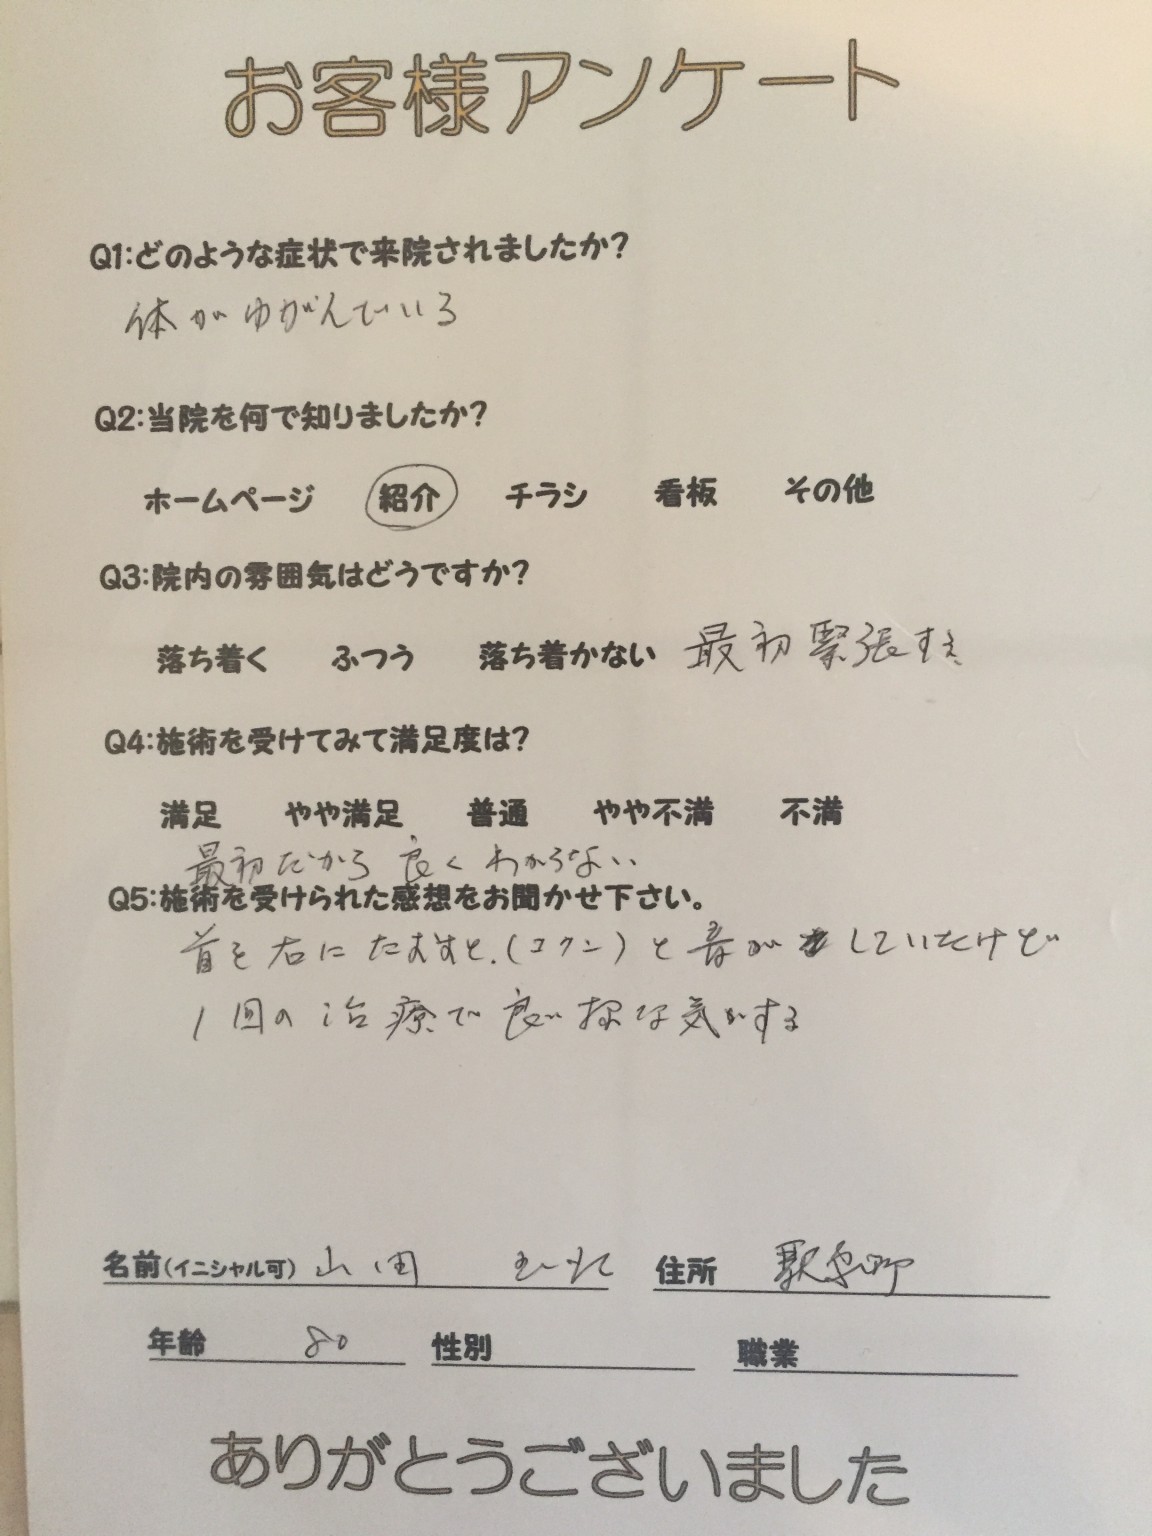 お客様アンケート
Q1:どのような症状で来院されましたか?
体がゆがんでいる
Q2:当院を何で知りましたか?
ホームページ 紹介 チラシ 看板 その他
Q3:院内の雰囲気はどうですか?
落ち着く ふつう 落ち着かない 最初緊張する
Q4:施術を受けてみて満足度は?
満足 やや満足 普通 やや不満 不満
最初だから良くわからない
Q5:施術を受けられた感想をお聞かせ下さい。
首を右にたおすと、(コクン)と音がしていたけど
1回の治療で良い様な気がする
名前(イニシャル可) 山田 住所 駅家町
年齢 80 性別 職業
ありがとうございました